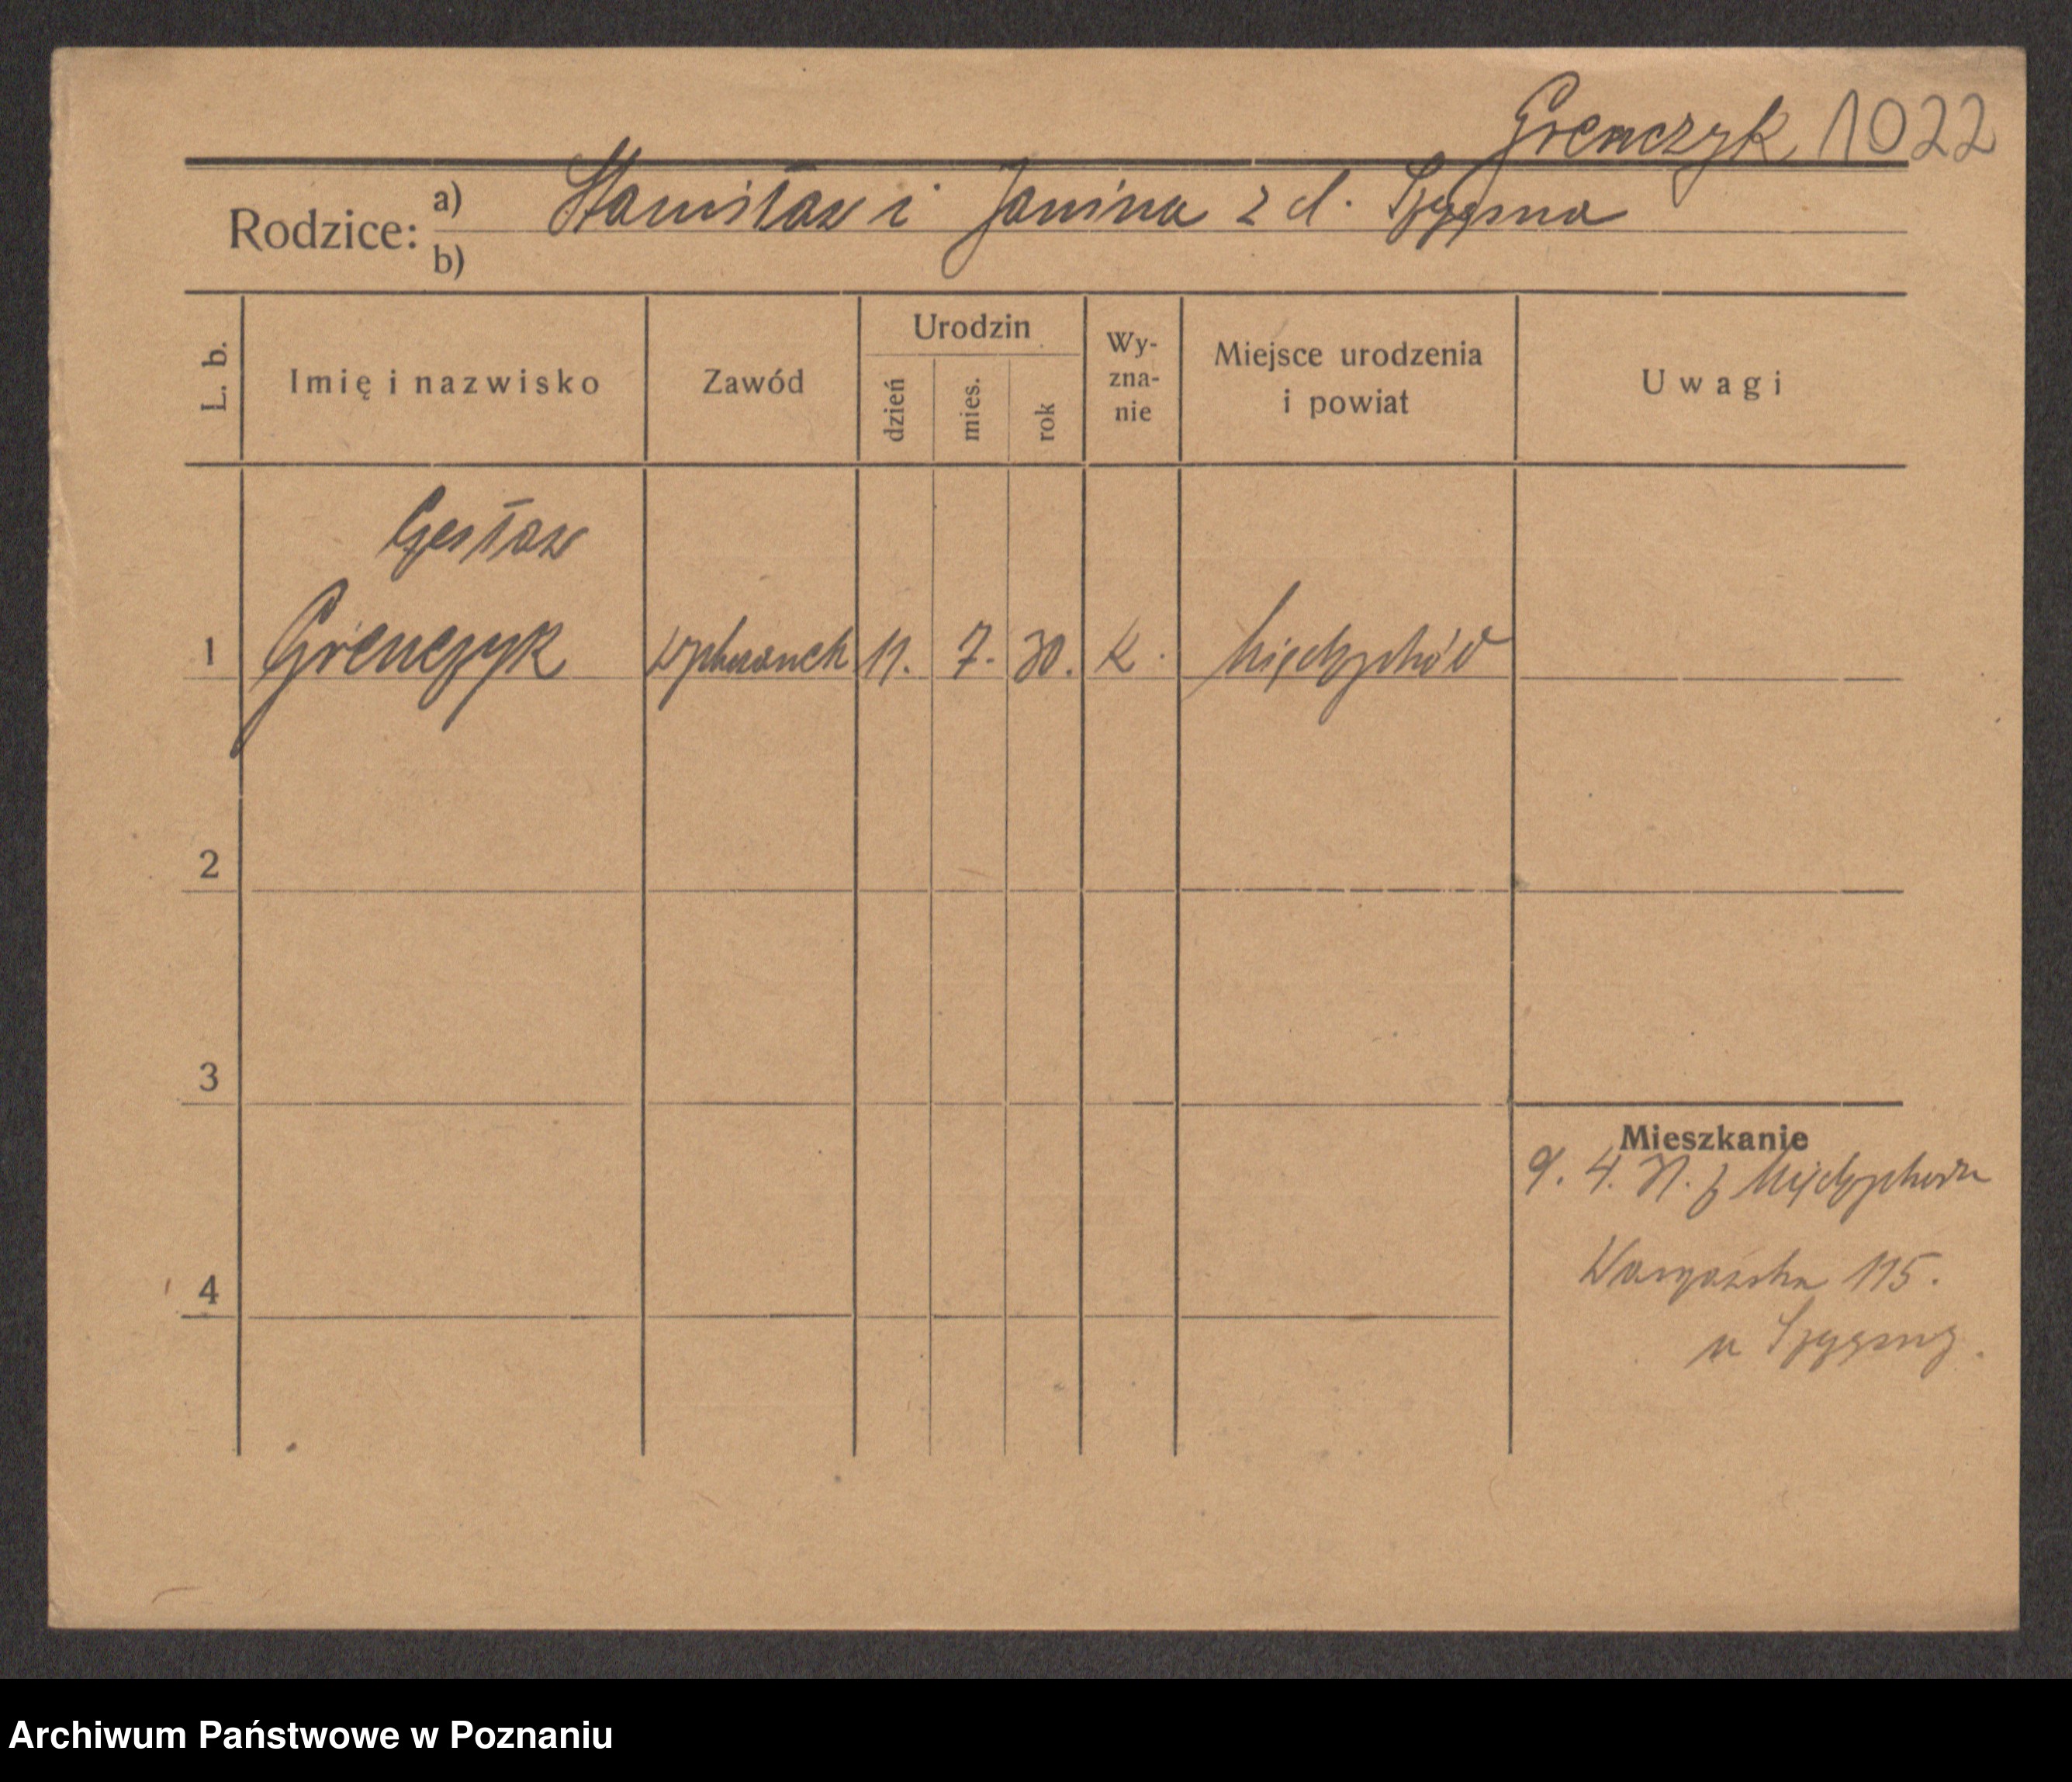 Grenczyk 1022
Rodzice: a) Stanisław i Janina z d. Szygma
b)
L. b.
Imię i nazwisko
Zawód
Urodzin
dzień
mies.
rok
Wy-
zna-
nie
Miejsce urodzenia
i powiat
Uwagi
Czesław
1 Grenczyk wychowanek 11. 7. 30. k. Międzychód
2
3
Mieszkanie
9. 4. 31. z Międzychodu
115.
u Szygmy.
4
Archiwum Państwowe w Poznaniu